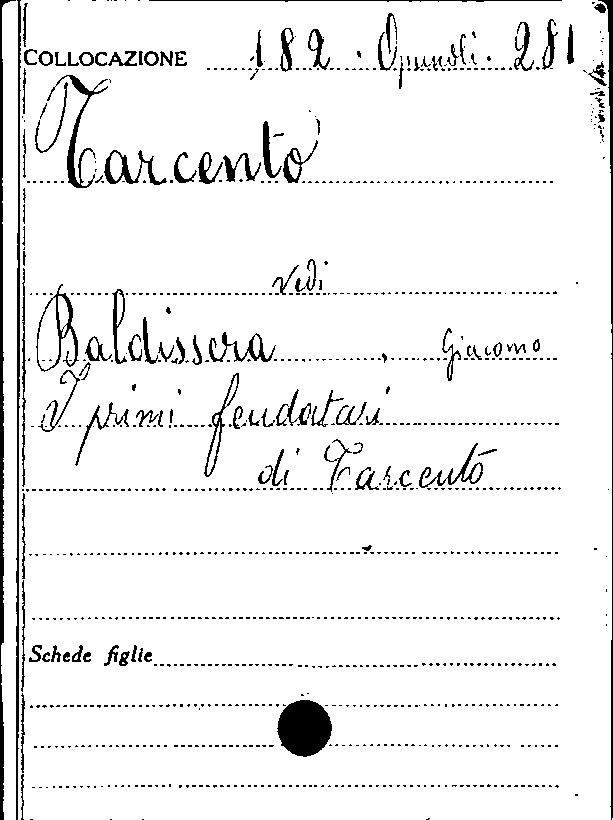 COLLOCAZIONE 182 . Opuscoli . 281
Tarcento
vedi
Baldissera , Giacomo
I primi feudatari
di Tarcento
Schede figlie